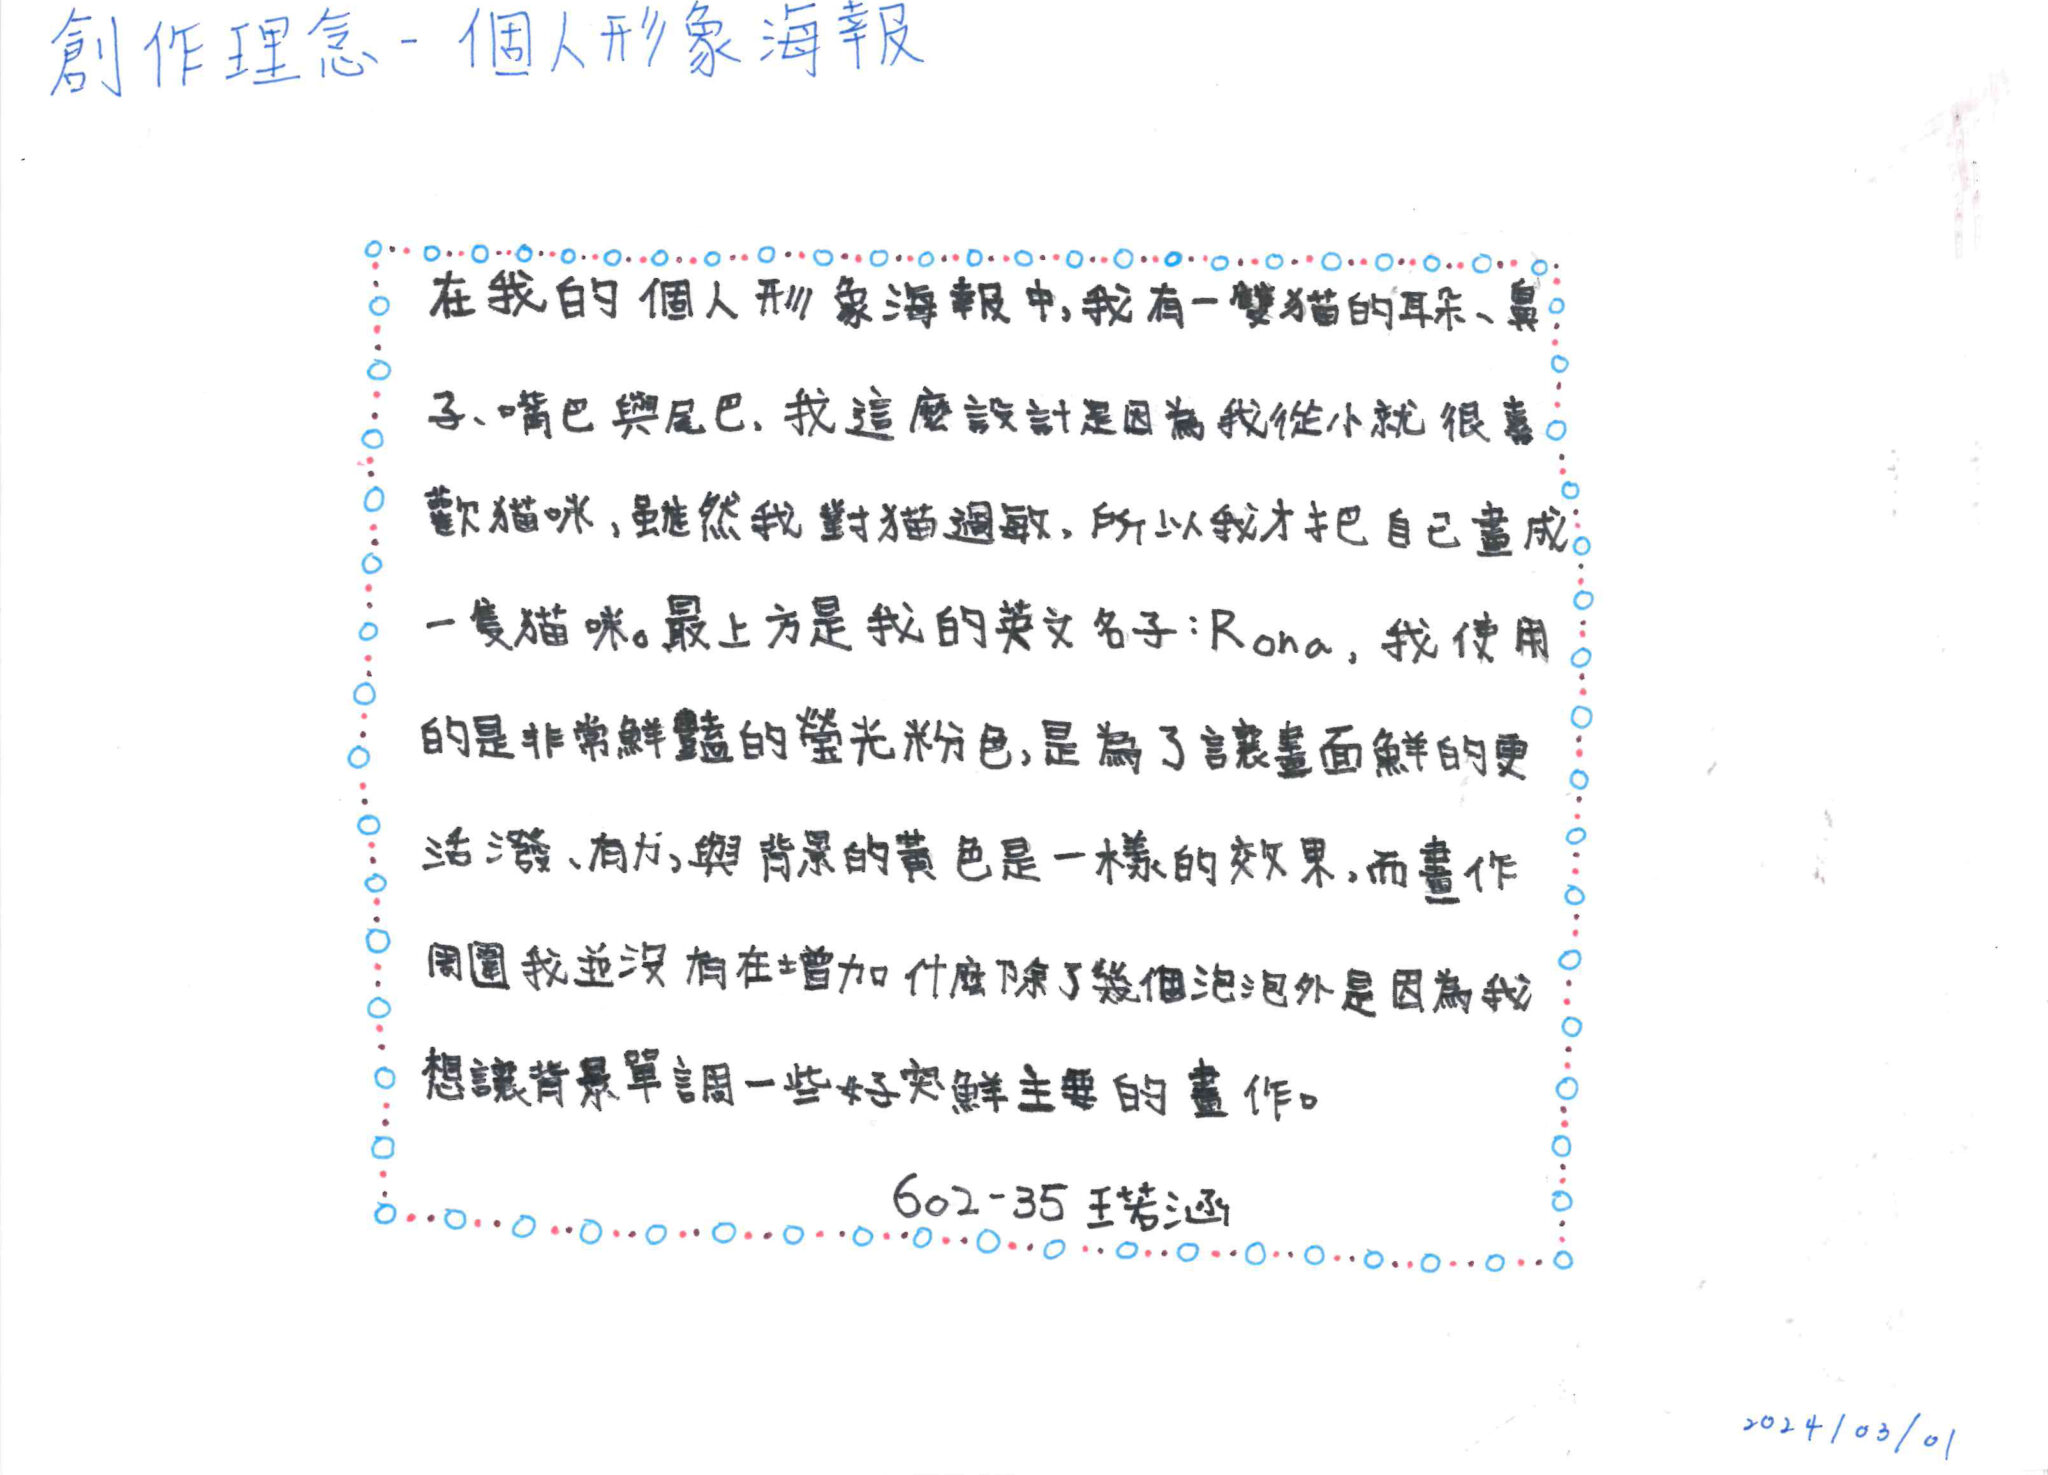 創作理念-個人形象海報
在我的個人形象海報中,我有一雙貓的耳朵、鼻
子、嘴巴與尾巴,我這麼設計是因為我從小就很喜
歡貓咪,雖然我對貓過敏,所以我才把自己畫成
一隻貓咪。最上方是我的英文名子:Rona,我使用
的是非常鮮豔的螢光粉色,是為了讓畫面鮮的更
活潑、有力,與背景的黃色是一樣的效果,而畫作
周圍我並沒有在增加什麼除了幾個泡泡外是因為我
想讓背景單調一些好突鮮主要的畫作。
602-35 王若涵
2024/03/01